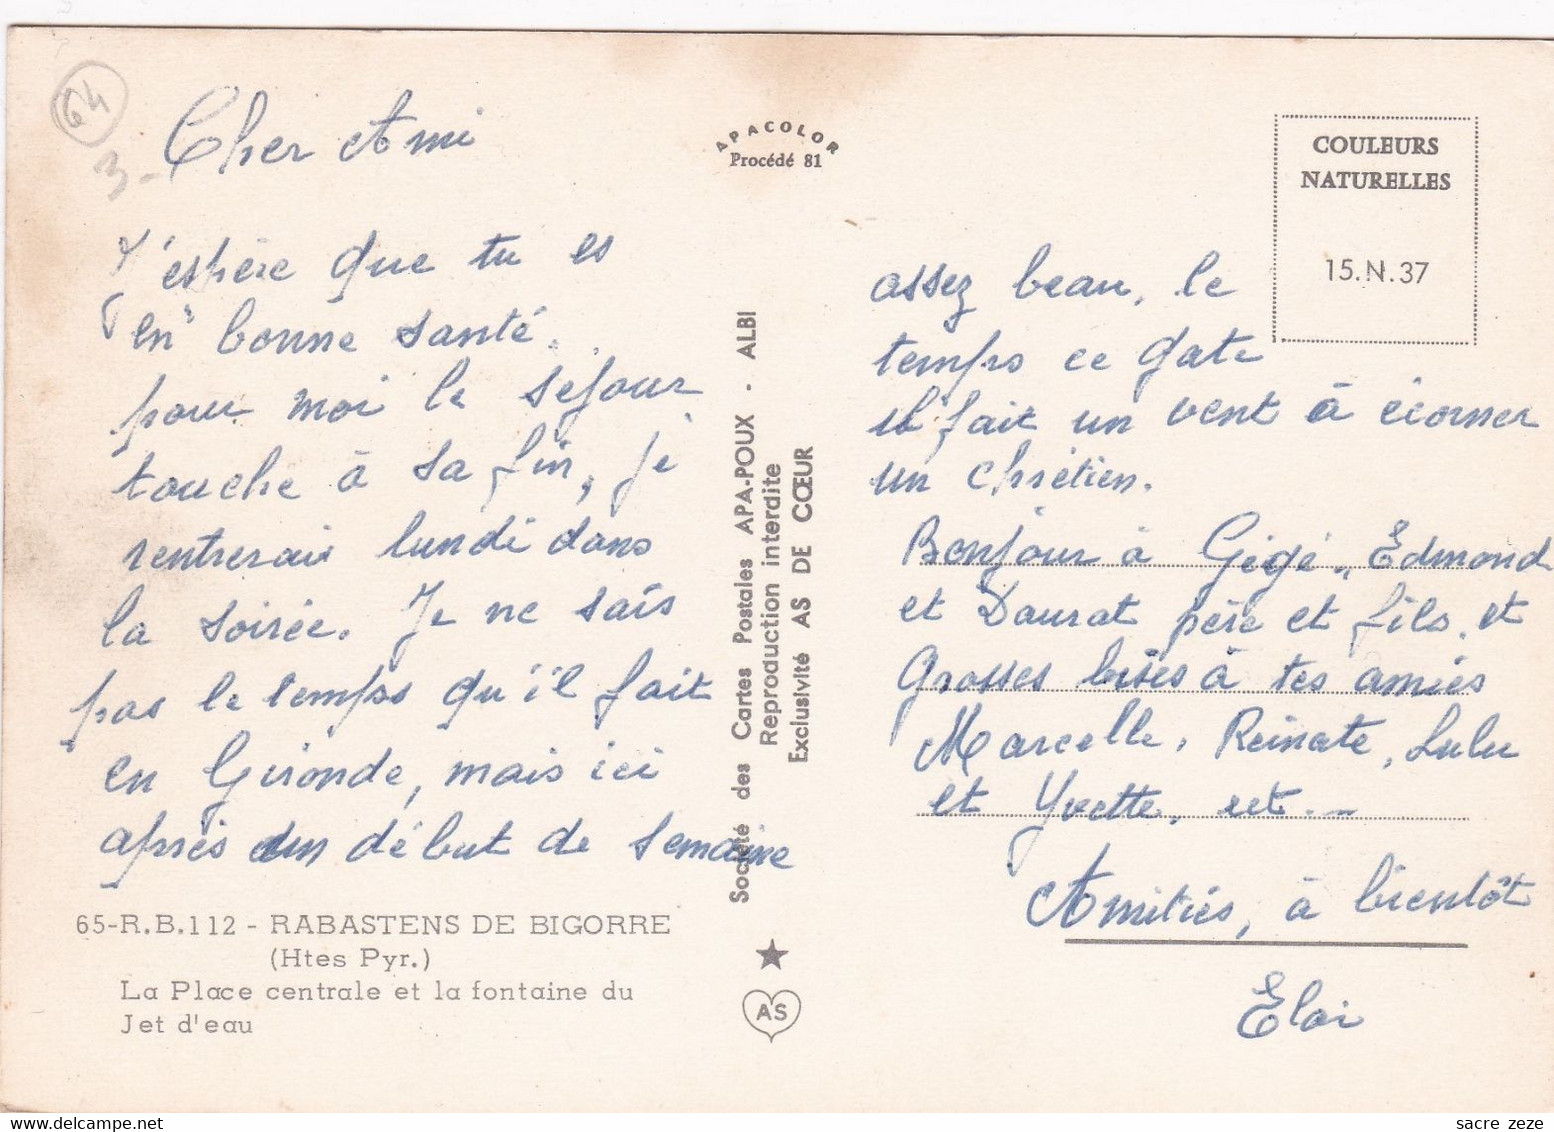 64
3-
Cher Ami
J'espère que tu es
en bonne santé.
pour moi le séjour
touche à sa fin, je
rentrerai lundi dans
la soirée. Je ne sais
pas le temps qu'il fait
en Gironde, mais ici
après un début de semaine
65-R.B.112 - RABASTENS DE BIGORRE
(Htes Pyr.)
La Place centrale et la fontaine du
Jet d'eau
APACOLOR
Procédé 81
Société des Cartes Postales APA-POUX - ALBI
Reproduction interdite
Exclusivité AS DE CŒUR
AS
COULEURS
NATURELLES
15.N.37
assez beau, le
temps ce gate
il fait un vent à écorner
un Chrétien.
Bonjour à Gégé, Edmond
et Daurat père et fils, et
Grosses bises à tes amies
Marcelle, Reinate, Lulu
et Yvette, ect...
Amitiés, à bientôt
Eloi
sacre zeze